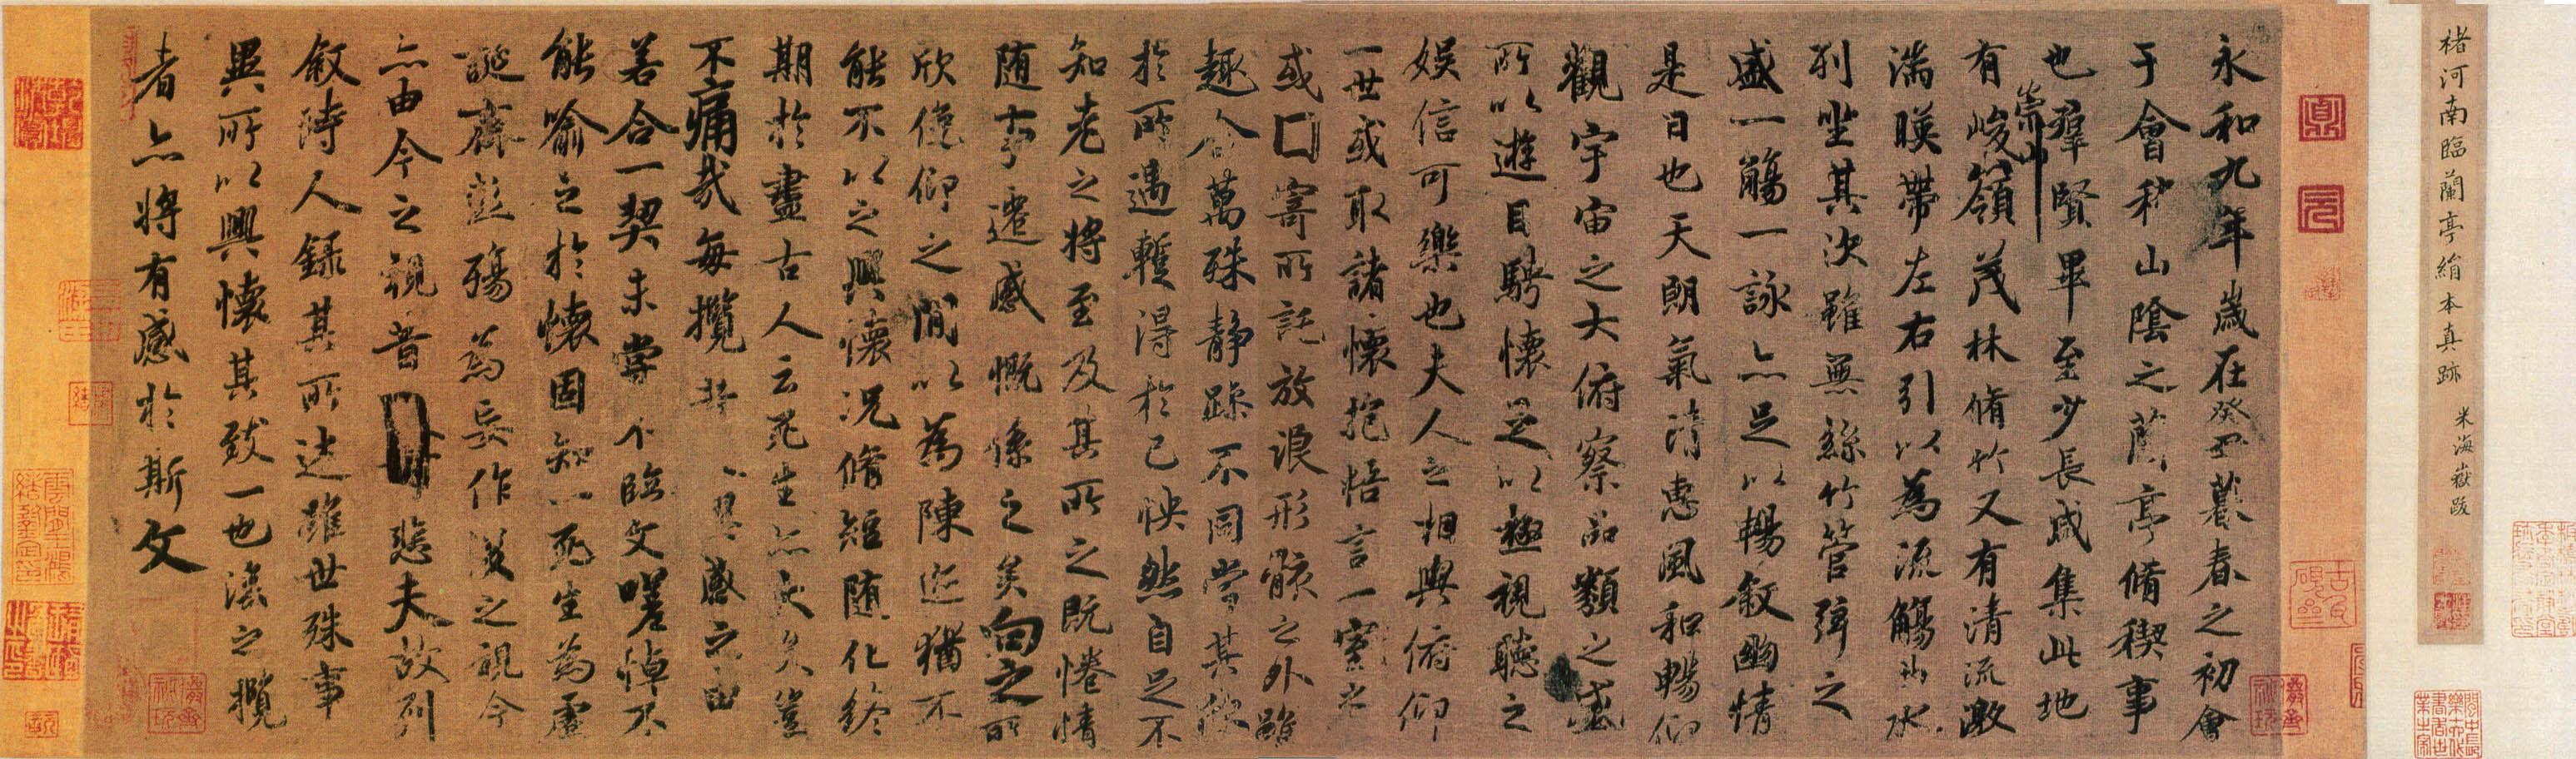 褚河南臨蘭亭絹本真跡 米海嶽跋
永和九年歲在癸丑暮春之初會
于會稽山陰之蘭亭脩稧事
也羣賢畢至少長咸集此地
有崇山峻嶺茂林脩竹又有清流激
湍暎帶左右引以為流觴曲水
列坐其次雖無絲竹管弦之
盛一觴一詠亦足以暢敘幽情
是日也天朗氣清惠風和暢仰
觀宇宙之大俯察品類之盛
所以遊目騁懷足以極視聽之
娛信可樂也夫人之相與俯仰
一世或取諸懷抱悟言一室之
或寄所託放浪形骸之外雖
趣舍萬殊靜躁不同當其欣
於所遇暫得於己怏然自足不
知老之將至及其所之既惓情
随事遷感慨係之矣向之所
欣俛仰之閒以為陳迹猶不
能不以之興懷況脩短随化終
期於盡古人云死生亦大矣豈
不痛哉每攬昔人興感之由
若合一契未嘗不臨文嗟悼不
能喻之於懷固知一死生為虛
誕齊彭殤為妄作後之視今
亦由今之視昔悲夫故列
敘時人錄其所述雖世殊事
異所以興懷其致一也後之攬
者亦將有感於斯文